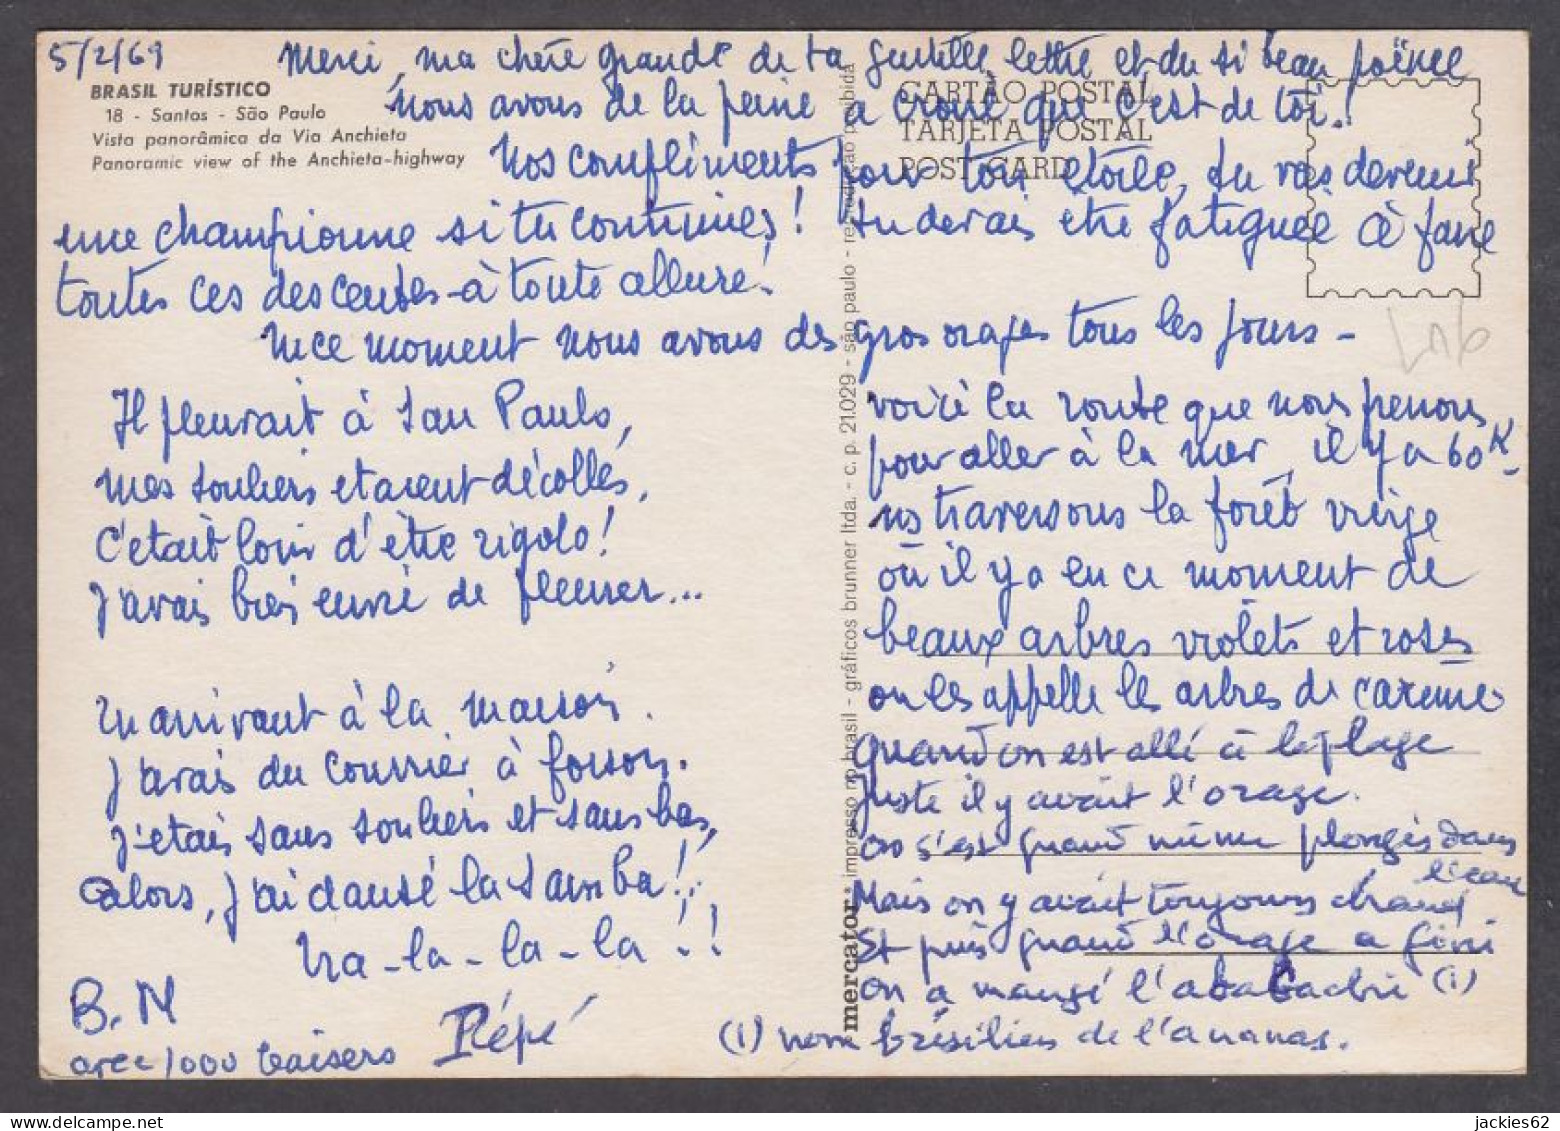 5/2/69
Merci, ma chère grande de ta gentille lettre et du si beau poème
BRASIL TURÍSTICO
18 - Santos - São Paulo
Vista panorâmica da Via Anchieta
Panoramic view of the Anchieta-highway
CARTÃO POSTAL
TARJETA POSTAL
POST CARD
nous avons de la peine à croire que c'est de toi!
Nos compliments pour ton étoile, tu vas devenir
une championne si tu continues! tu devais être fatiguée à faire
toutes ces descentes à toute allure!
En ce moment nous avons des gros orages tous les jours -
Il pleuvait à San Paulo,
mes souliers etaient décollés,
c'était loin d'être rigolo!
J'avais bien envie de pleurer...
En arrivant à la maison.
J'avais du courrier à foison.
J'étais sans souliers et sans bas,
alors, j'ai dansé la Samba!
tra-la-la-la!!
B. M
avec 1000 baisers Pépé
voici la route que nous prenons
pour aller à la mer, il y a 60 K
ns traversons la forêt vierge
où il y a en ce moment de
beaux arbres violets et roses
on les appelle les arbres de carême
Quand on est allé à la plage
Juste il y avait l'orage.
on s'est quand même plongés dans
l'eau
Mais on y avait toujours chaud
Et puis quand l'orage a fini
on a mangé l'ababachi (1)
(1) nom brésilien de l'ananas.
mercator * impresso no brasil - gráficos brunner ltda. - c. p. 21.029 - são paulo - reprodução proibida
jackies62